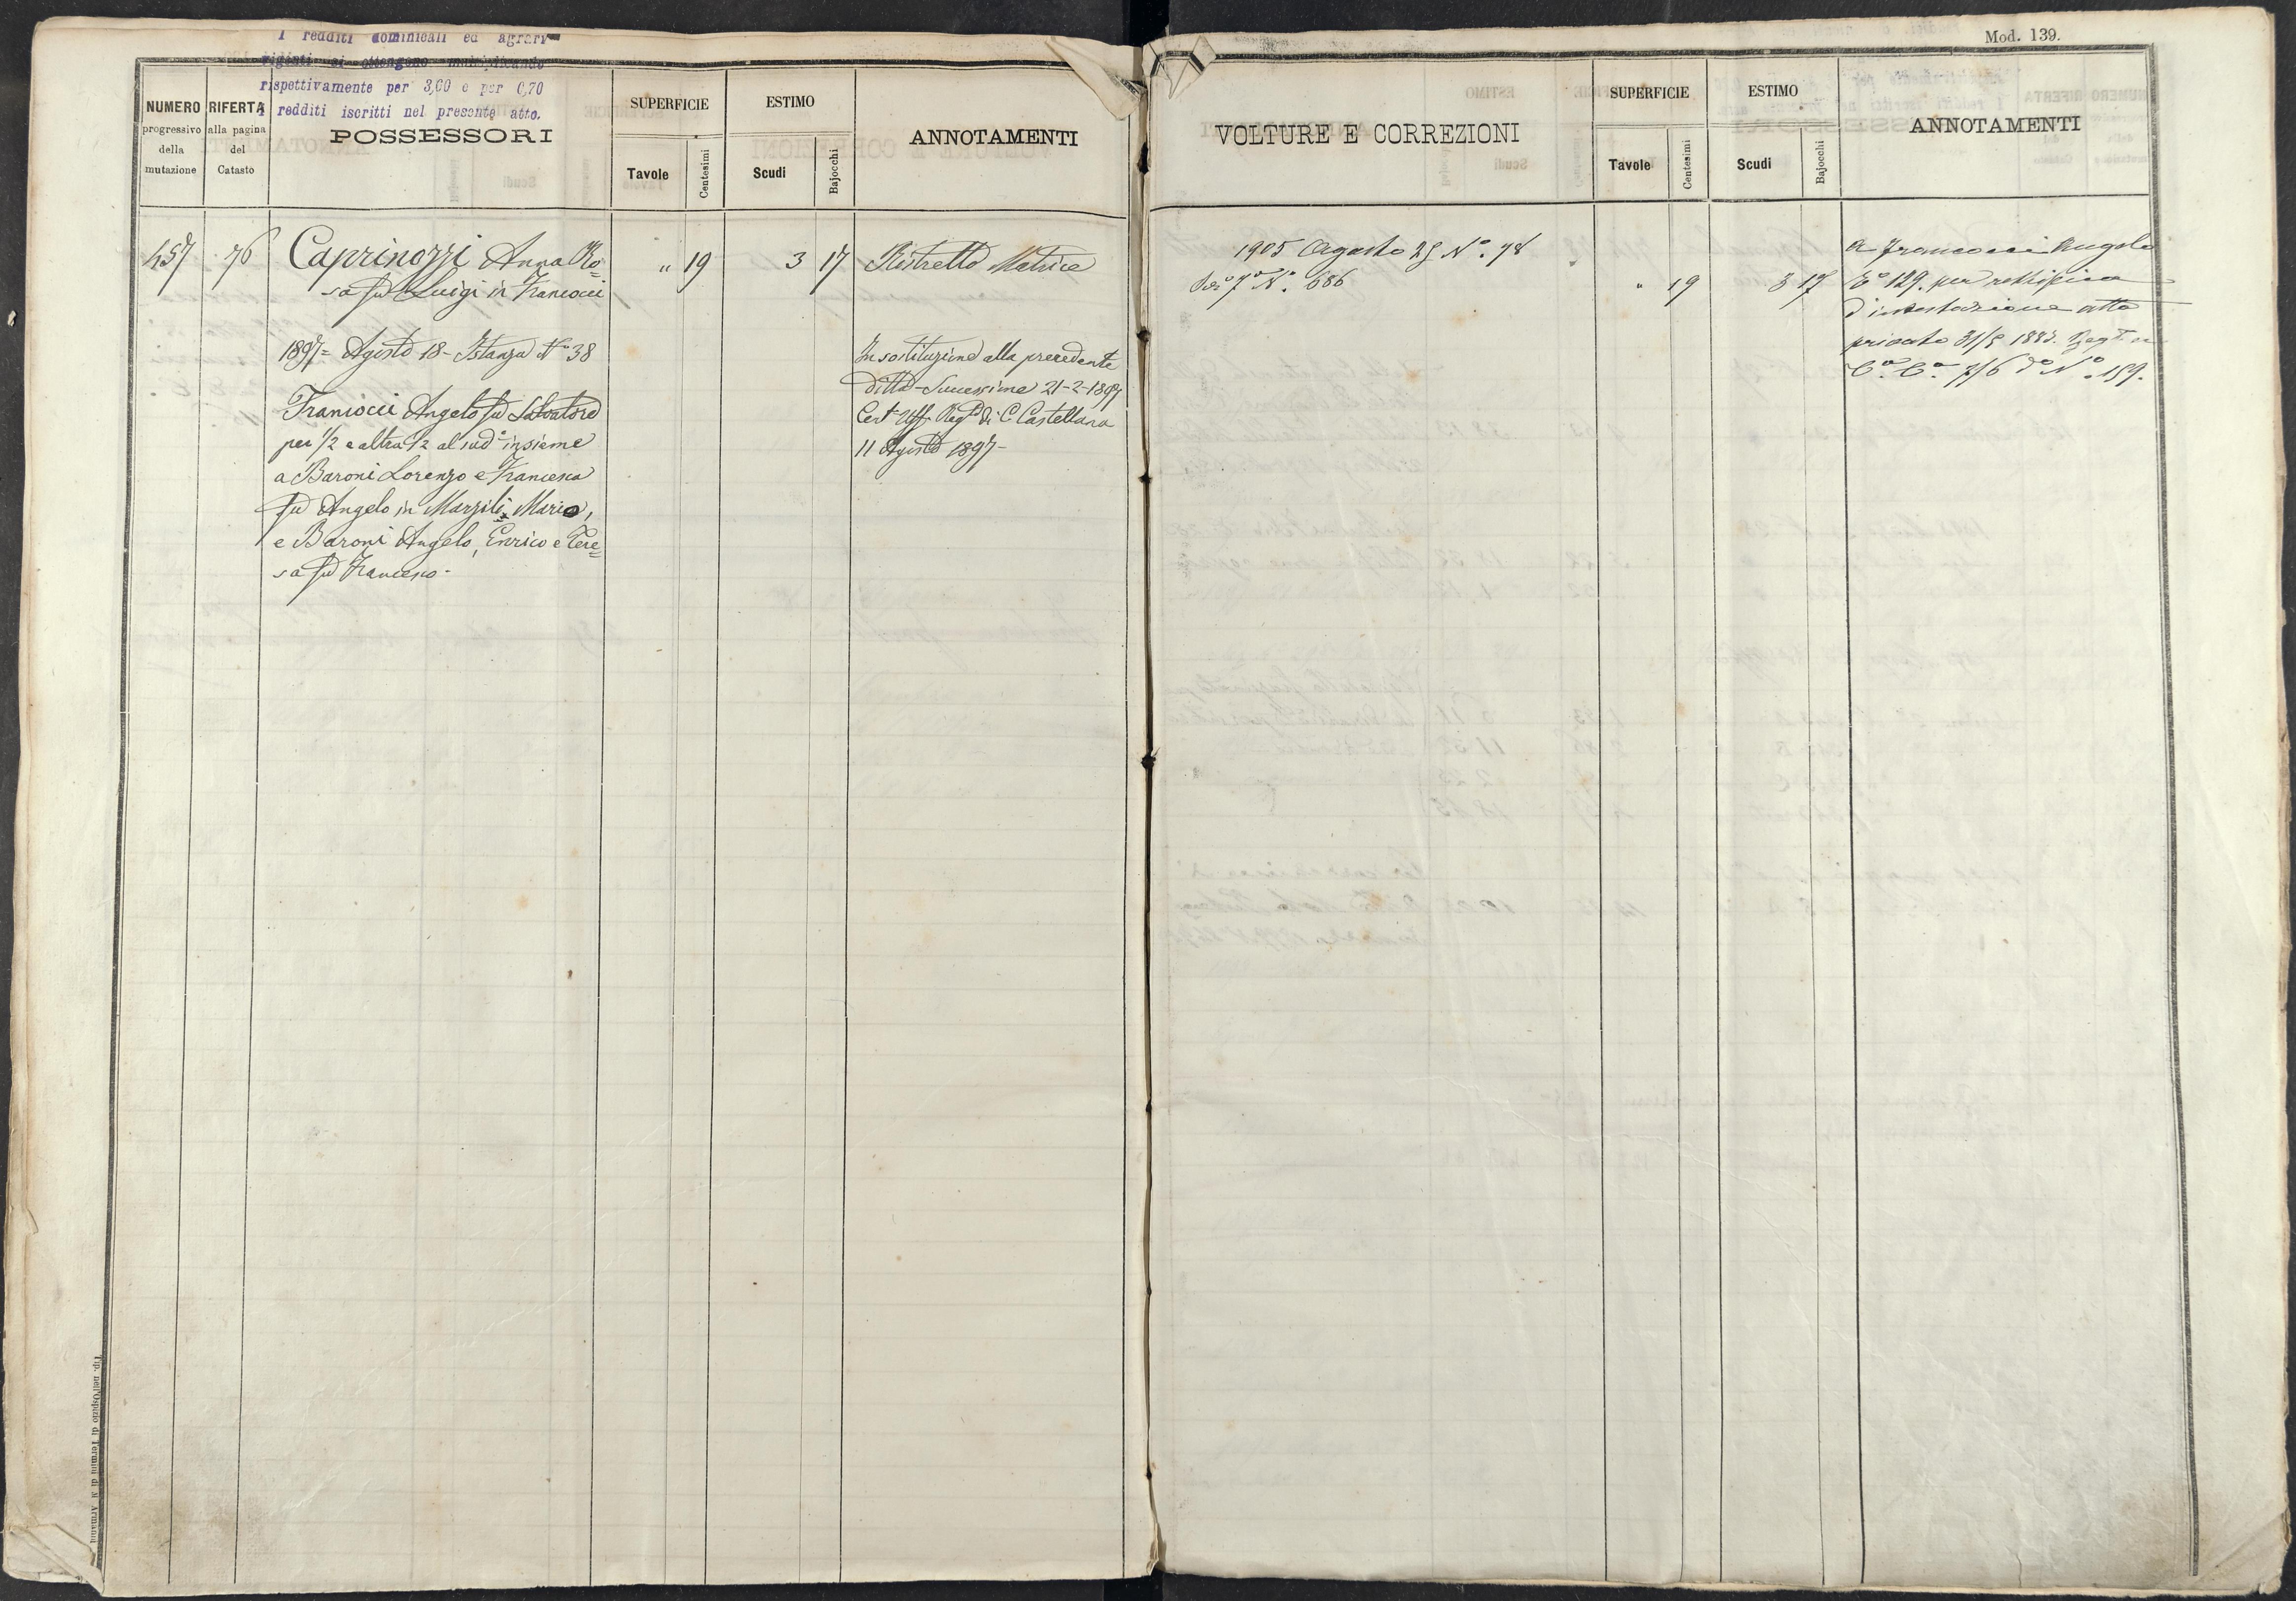 I redditi dominicali ed agrari
vigenti si ottengono moltiplicando
rispettivamente per 3,60 e per 0,70
i redditi iscritti nel presente atto.
NUMERO
progressivo
della
mutazione
RIFERTA
alla pagina
del
Catasto
POSSESSORI
SUPERFICIE
Tavole
Centesimi
ESTIMO
Scudi
Bajocchi
ANNOTAMENTI
457 76 Caprinozzi Anna Ro= " 19 3 17 Ristretto Matrice
sa fu Luigi in Franciocci
1897= Agosto 18- Istanza N° 38
Franciocci Angelo fu Salvatore
per 1/2 e altra 1/2 al sud° insieme
a Baroni Lorenzo e Francesca
fu Angelo in Marzili Mario,
e Baroni Angelo, Enrico e Tere=
sa fu Francesco-
In sostituzione alla precedente
ditta-Successione 21-2-1897
Cert° Uff. Reg° di C. Castellana
11 Agosto 1897-
Tip. nell'Ospizio di Termini di M. Armanni
Mod. 139.
VOLTURE E CORREZIONI
SUPERFICIE
Tavole
Centesimi
ESTIMO
Scudi
Bajocchi
ANNOTAMENTI
1905 Agosto 25 N°. 78
7° N°. 686 " 19 3 17
a Franciocci Angelo
129. per rettifica
d'intestazione atto
privato 31/5 1883.
N° 159.